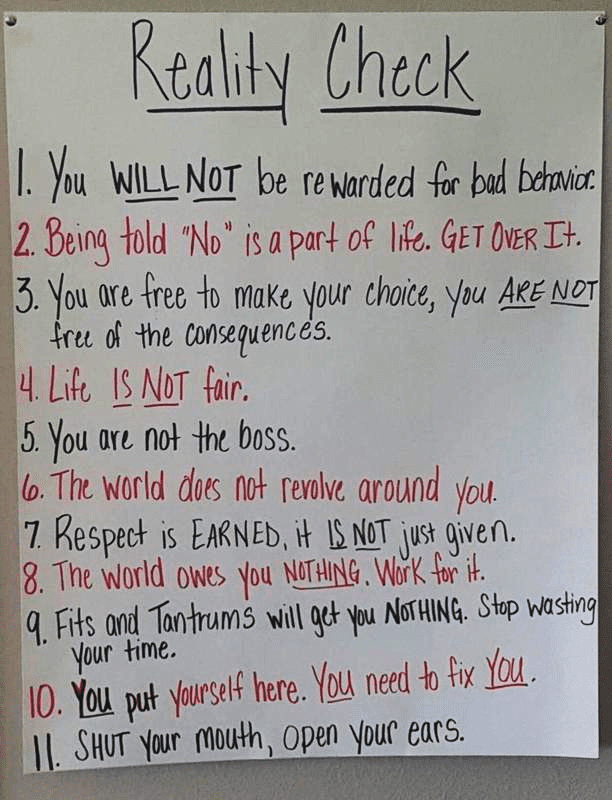 Reality Check
1. You WILL NOT be rewarded for bad behavior.
2. Being told "No" is a part of life. GET OVER It.
3. You are free to make your choice, you ARE NOT
free of the consequences.
4. Life IS NOT fair.
5. You are not the boss.
6. The world does not revolve around you.
7. Respect is EARNED, it IS NOT just given.
8. The world owes you NOTHING. Work for it.
9. Fits and Tantrums will get you NOTHING. Stop wasting
your time.
10. You put yourself here. You need to fix You.
11. SHUT your mouth, open your ears.